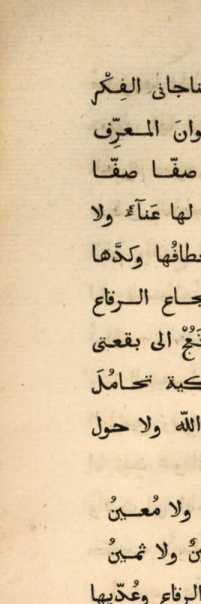 ناجانى الفِكْر
وانَ المعرِّف
صفّا صفّا
لها عَنآءً ولا
وكَدَّها
الرقاع
الى بقعتى
تحامُلَ
اللّه ولا حول
ولا مُعينُ
ولا ثمينُ
الرقاع وعُدّيها